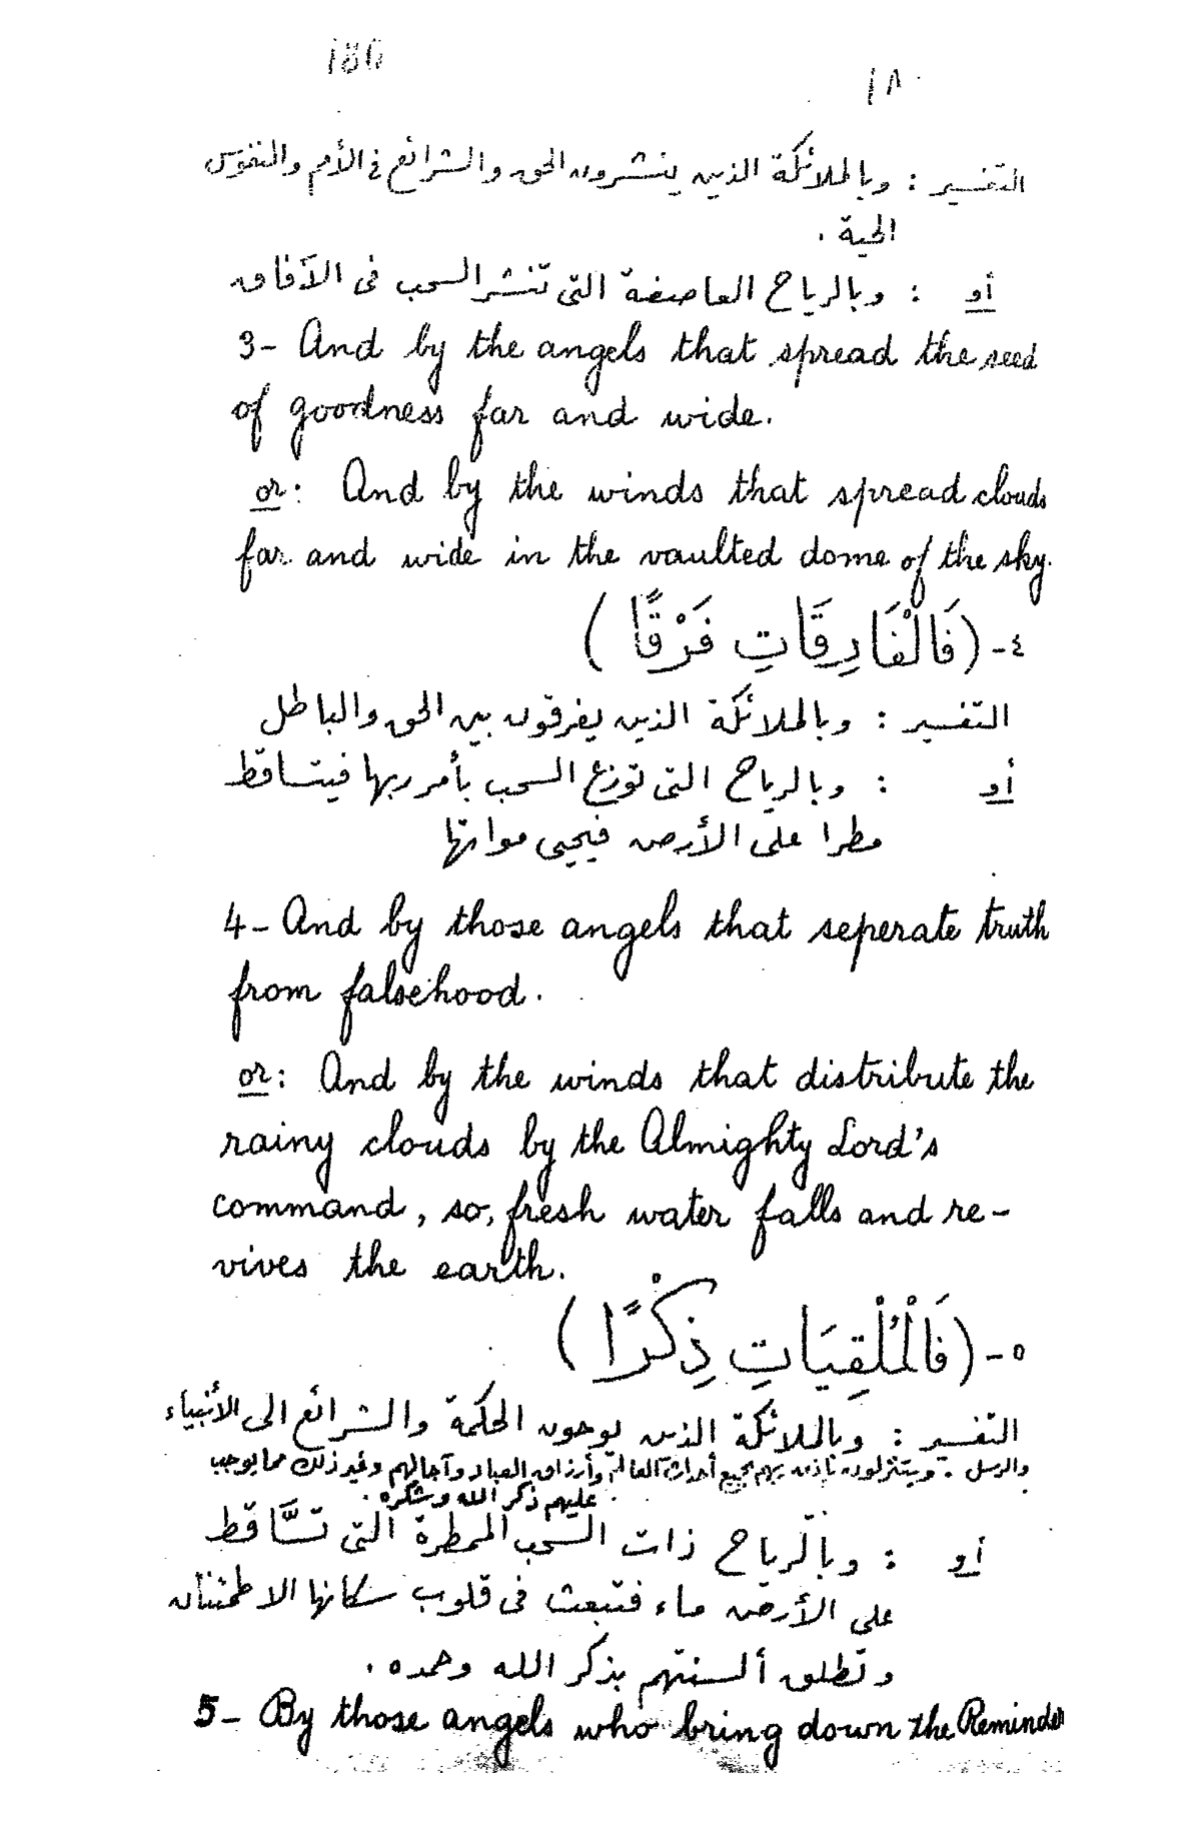 186
١٨
التفسير : وبالملائكة الذين ينشرون الحق والشرائع في الأمم والنفوس
الحية .
أو : وبالرياح العاصفة التى تنشر السحب فى الآفاق
3- And by the angels that spread the seed
of goodness far and wide.
or: And by the winds that spread clouds
far and wide in the vaulted dome of the sky.
٤- (فَالْفَارِقَاتِ فَرْقًا )
التفسير : وبالملائكة الذين يفرقون بين الحق والباطل
أو : وبالرياح التى توزع السحب بأمر ربها فيتساقط
مطرا على الأرض فيحيى مواتها
4- And by those angels that seperate truth
from falsehood.
or: And by the winds that distribute the
rainy clouds by the Almighty Lord's
command, so, fresh water falls and re-
vives the earth.
٥- (فَالْمُلْقِيَاتِ ذِكْرًا )
التفسير : وبالملائكة الذين يوحون الحكمة والشرائع الى الأنبياء
والرسل . ويتنزلون بإذن ربهم بجميع أحداث العالم وأرزاق العباد وآجالهم وغير ذلك مما يوجب
عليهم ذكر الله وشكره .
أو : وبالرياح ذات السحب الممطرة التى تسَّاقط
على الأرض ماء فتبعث فى قلوب سكانها الاطمئنان
وتطلق ألسنتهم بذكر الله وحمده .
5- By those angels who bring down the Reminder